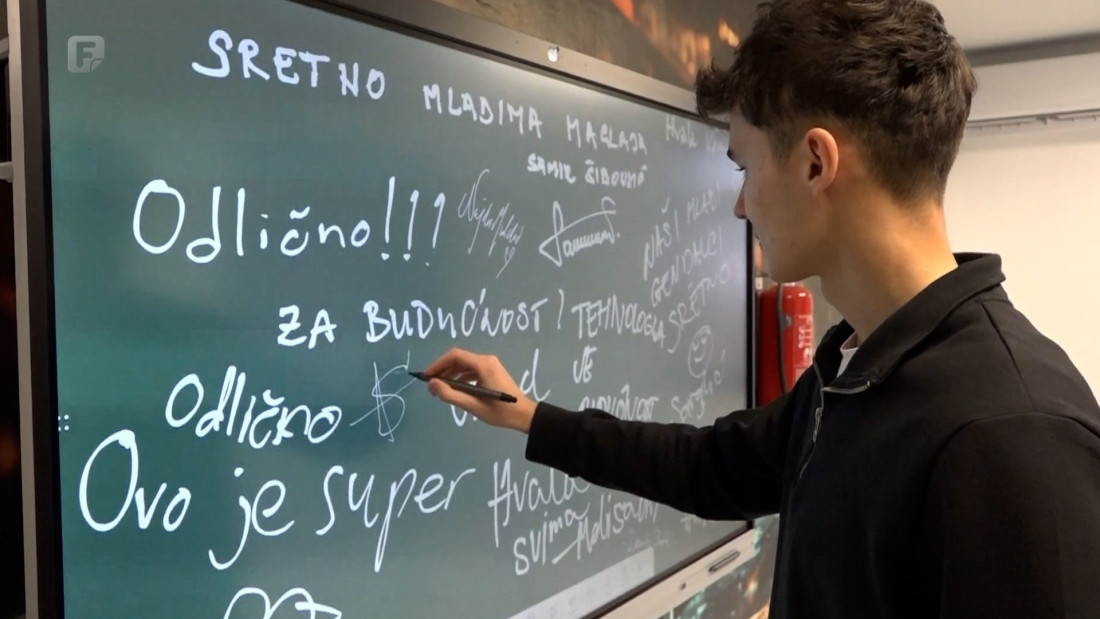 F
SRETNO MLADIMA MAGLAJA
Hvala
SAMIR
Odlično!!!
NAŠI MLADI
GENIJALCI
SRETNO
ZA BUDUĆNOST!
TEHNOLOGIJA
JE
BUDUĆNOST
Odlično
Ovo je super
Hvala
svima
Melisa